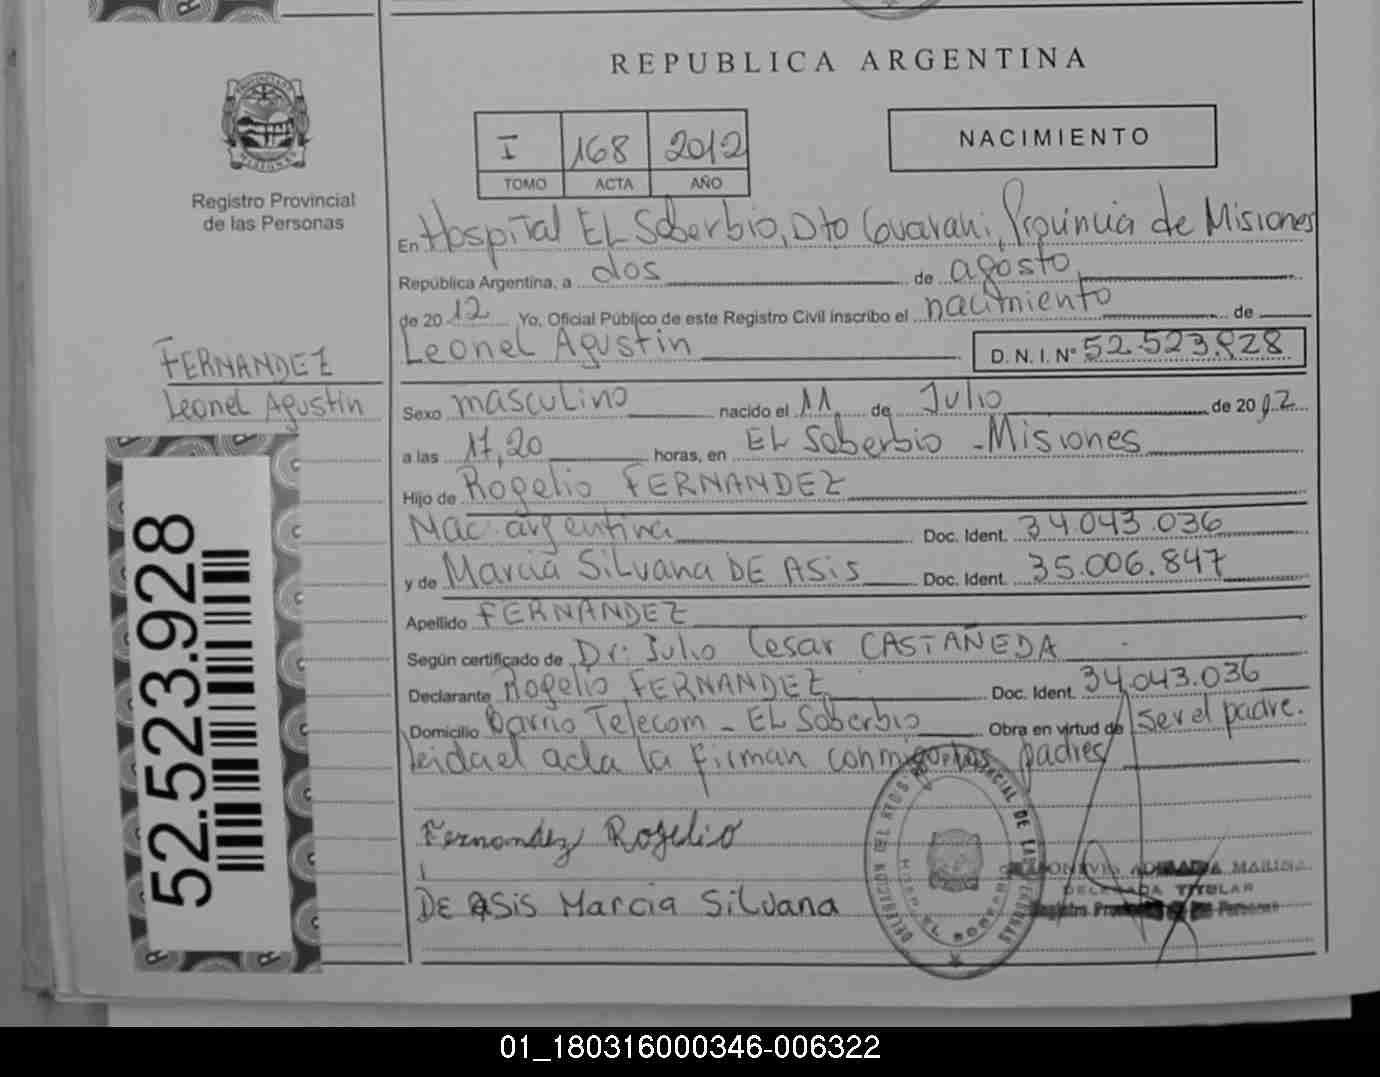 REPUBLICA ARGENTINA
Registro Provincial
de las Personas
I 168 2012
TOMO ACTA AÑO
NACIMIENTO
En Hospital EL Soberbio, Dto Guarani, Provincia de Misiones
República Argentina, a dos de agosto
de 2012 Yo, Oficial Público de este Registro Civil inscribo el nacimiento de
Leonel Agustin D. N. I. Nº 52.523.928
FERNANDEZ
Leonel Agustin
Sexo masculino nacido el 11 de Julio de 2012
a las 17,20 horas, en EL Soberbio - Misiones
Hijo de Rogelio FERNANDEZ
Nac. argentina Doc. Ident. 34.043.036
y de Marcia Silvana DE ASIS Doc. Ident. 35.006.847
Apellido FERNANDEZ
Según certificado de Dr. Julio Cesar CASTAÑEDA
Declarante Rogelio FERNANDEZ Doc. Ident. 34.043.036
Domicilio Barrio Telecom - EL Soberbio Obra en virtud de ser el padre.
leida el acta la firman conmigo los padres
Fernandez Rogelio
DE ASIS Marcia Silvana
DELEGADA TITULAR
52.523.928
01_180316000346-006322